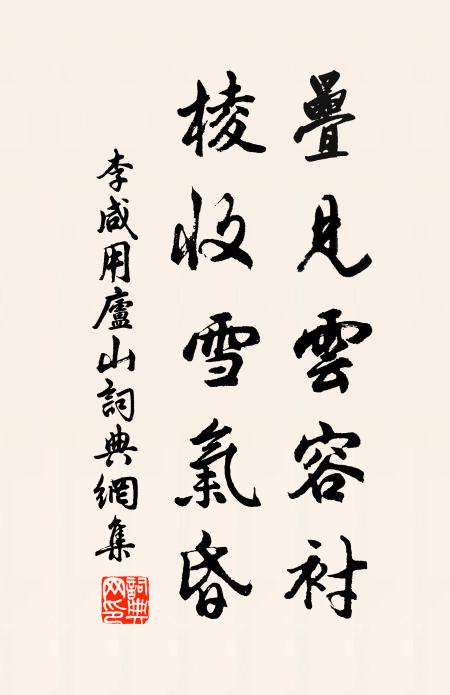 疊見雲容衬
棱收雪氣昏
李咸用廬山詞典網集
詞典網印